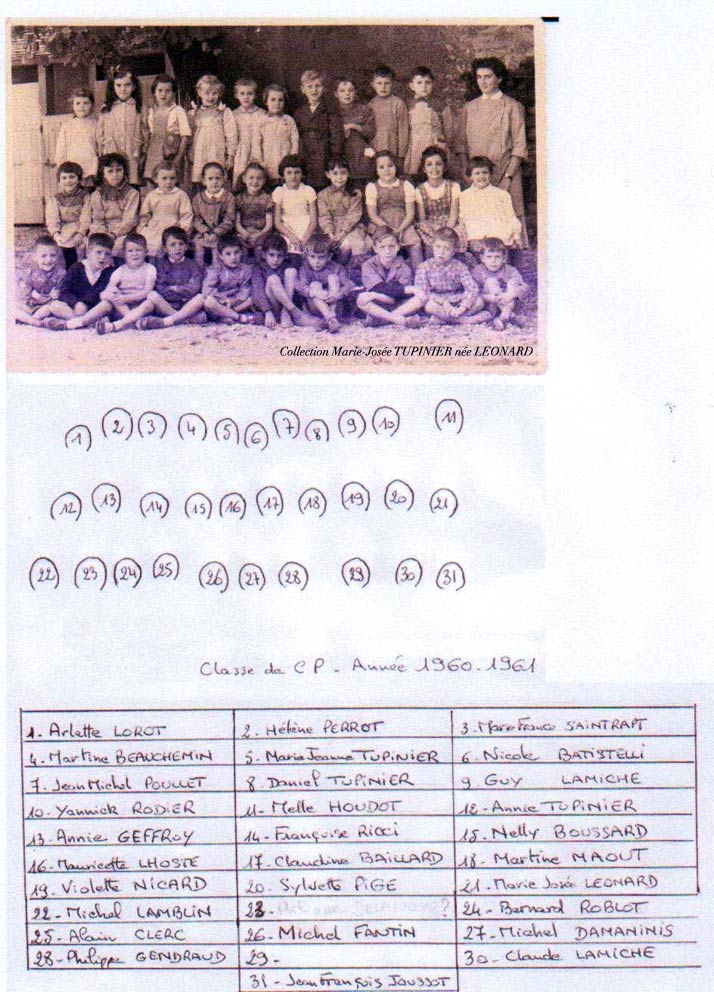 Collection Marie-Josée TUPINIER née LEONARD
1 2 3 4 5 6 7 8 9 10 11
12 13 14 15 16 17 18 19 20 21
22 23 24 25 26 27 28 29 30 31
Classe de CP - Année 1960-1961
1. Arlette LOROT 2. Hélène PERROT 3. Marie France SAINTRAPT
4. Martine BEAUCHEMIN 5. Marie Jeanne TUPINIER 6. Nicole BATISTELLI
7. Jean Michel POULLET 8. Daniel TUPINIER 9. GUY LAMICHE
10. Yannick RODIER 11. Melle HOUDOT 12. Annie TUPINIER
13. Annie GEFFROY 14. Françoise RICCI 15. Nelly BOUSSARD
16. Mauricette LHOSTE 17. Claudine BAILLARD 18. Martine MAOUT
19. Violette NICARD 20. Sylvette PIGE 21. Marie Josée LEONARD
22. Michel LAMBLIN 23. Philippe ? 24. Bernard ROBLOT
25. Alain CLERC 26. Michel FANTIN 27. Michel DAMANINIS
28. Philippe GENDRAUD 29. 30. Claude LAMICHE
31. Jean François JOUSSOT